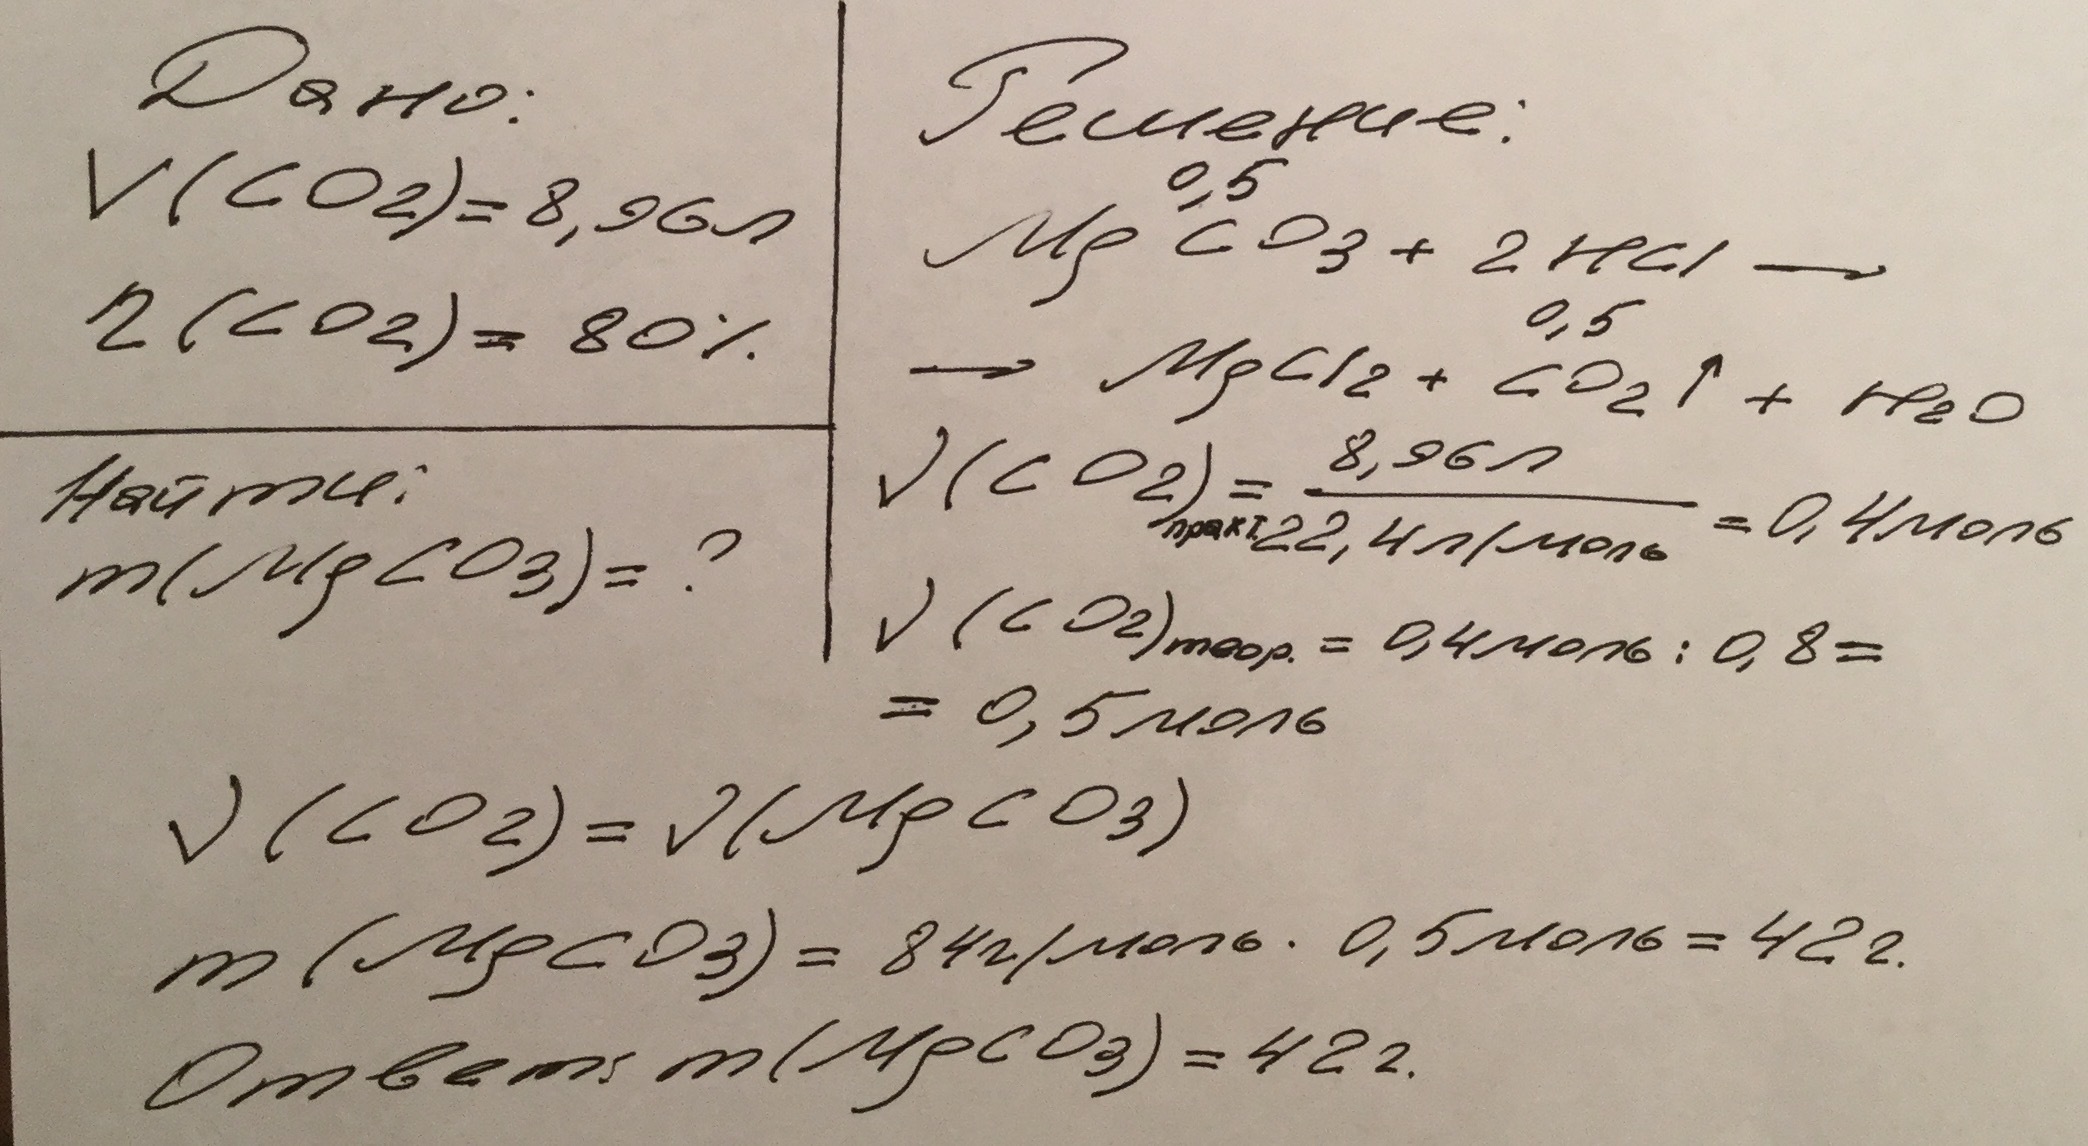 Дано:
V(CO2)=8,96л
η(CO2)=80%.
Найти:
m(MgCO3)=?
Решение:
0,5
MgCO3 + 2HCl →
0,5
→ MgCl2 + CO2↑ + H2O
ν(CO2)практ. = 8,96л / 22,4л/моль = 0,4моль
ν(CO2)теор. = 0,4моль : 0,8 =
= 0,5моль
ν(CO2) = ν(MgCO3)
m(MgCO3) = 84г/моль · 0,5моль = 42г.
Ответ: m(MgCO3) = 42г.